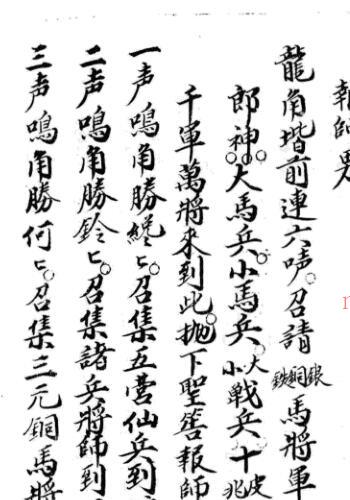 報師男
龍角堦前連六声召請銀銅鉄馬將軍
郎神大馬兵小馬兵大小戦兵十
千軍萬將來到此抛下聖筶報師
一声鳴角勝 匕召集五营仙兵到
二声鳴角勝鈴匕召集諸兵將師到
三声鳴角勝何匕召集三元铜馬將